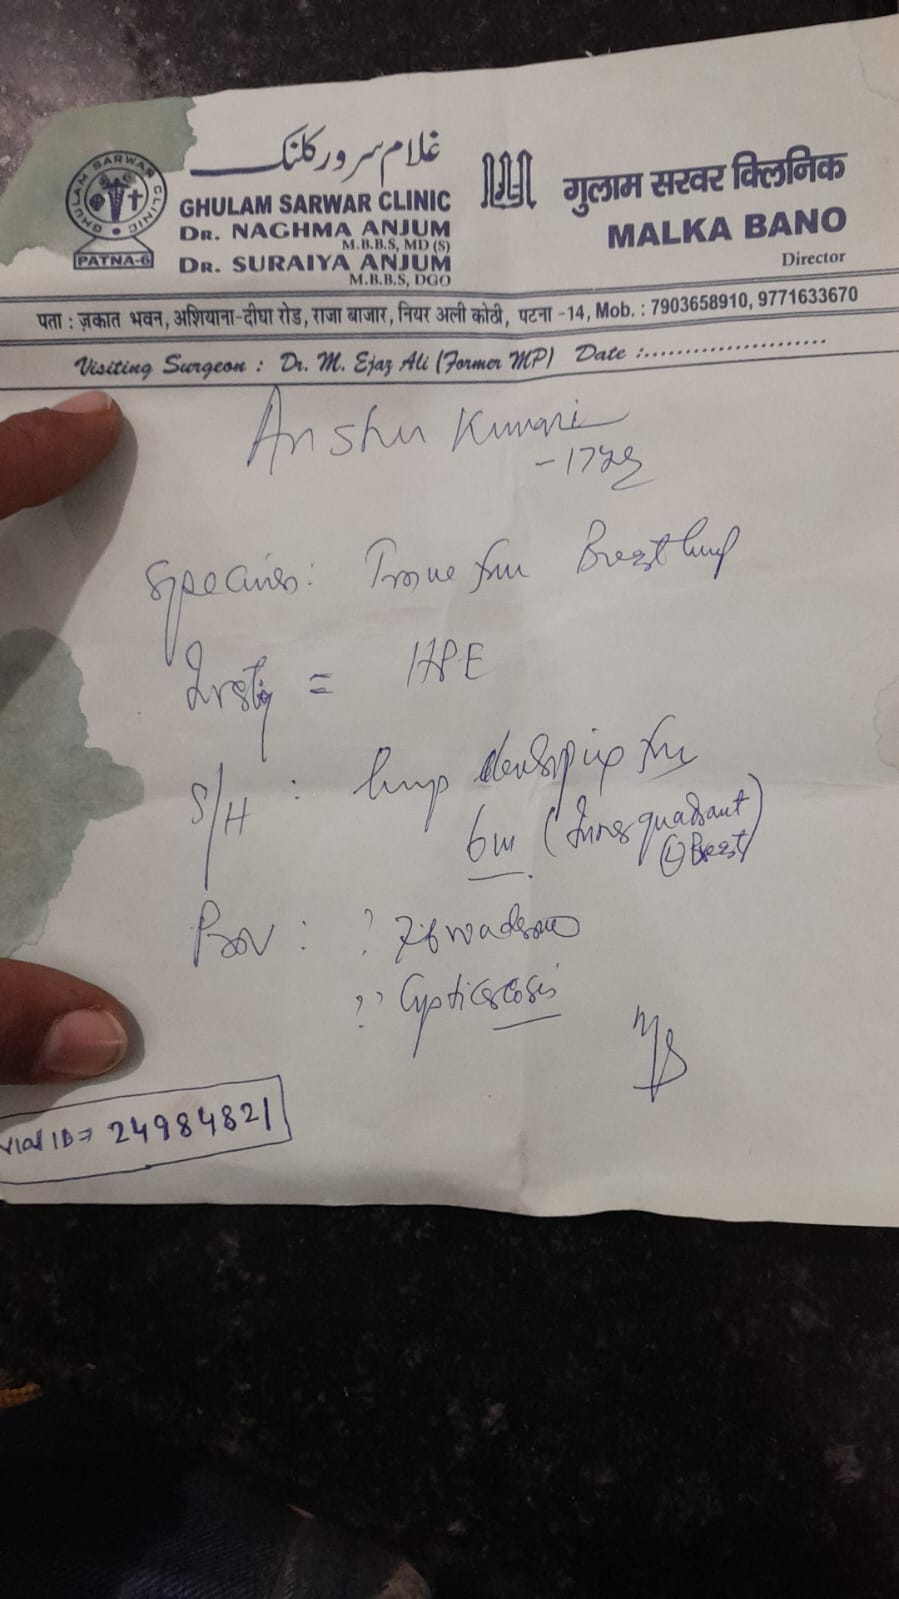 غلام سرور کلنک
GHULAM SARWAR CLINIC
DR. NAGHMA ANJUM
M.B.B.S, MD (S)
DR. SURAIYA ANJUM
M.B.B.S, DGO
GHULAM SARWAR CLINIC
PATNA-6
गुलाम सरवर क्लिनिक
MALKA BANO
Director
पता : ज़कात भवन, अशियाना-दीघा रोड, राजा बाजार, नियर अली कोठी, पटना -14, Mob. : 7903658910, 9771633670
Visiting Surgeon : Dr. M. Ejaz Ali (Former MP) Date :......................
Anshu Kumari
-17
Breast lump
= HPE
S/H : lump developing
6m (Inner quadrant)
(L) Breast
: ?
?? Cysticercosis
Vial ID => 24984821